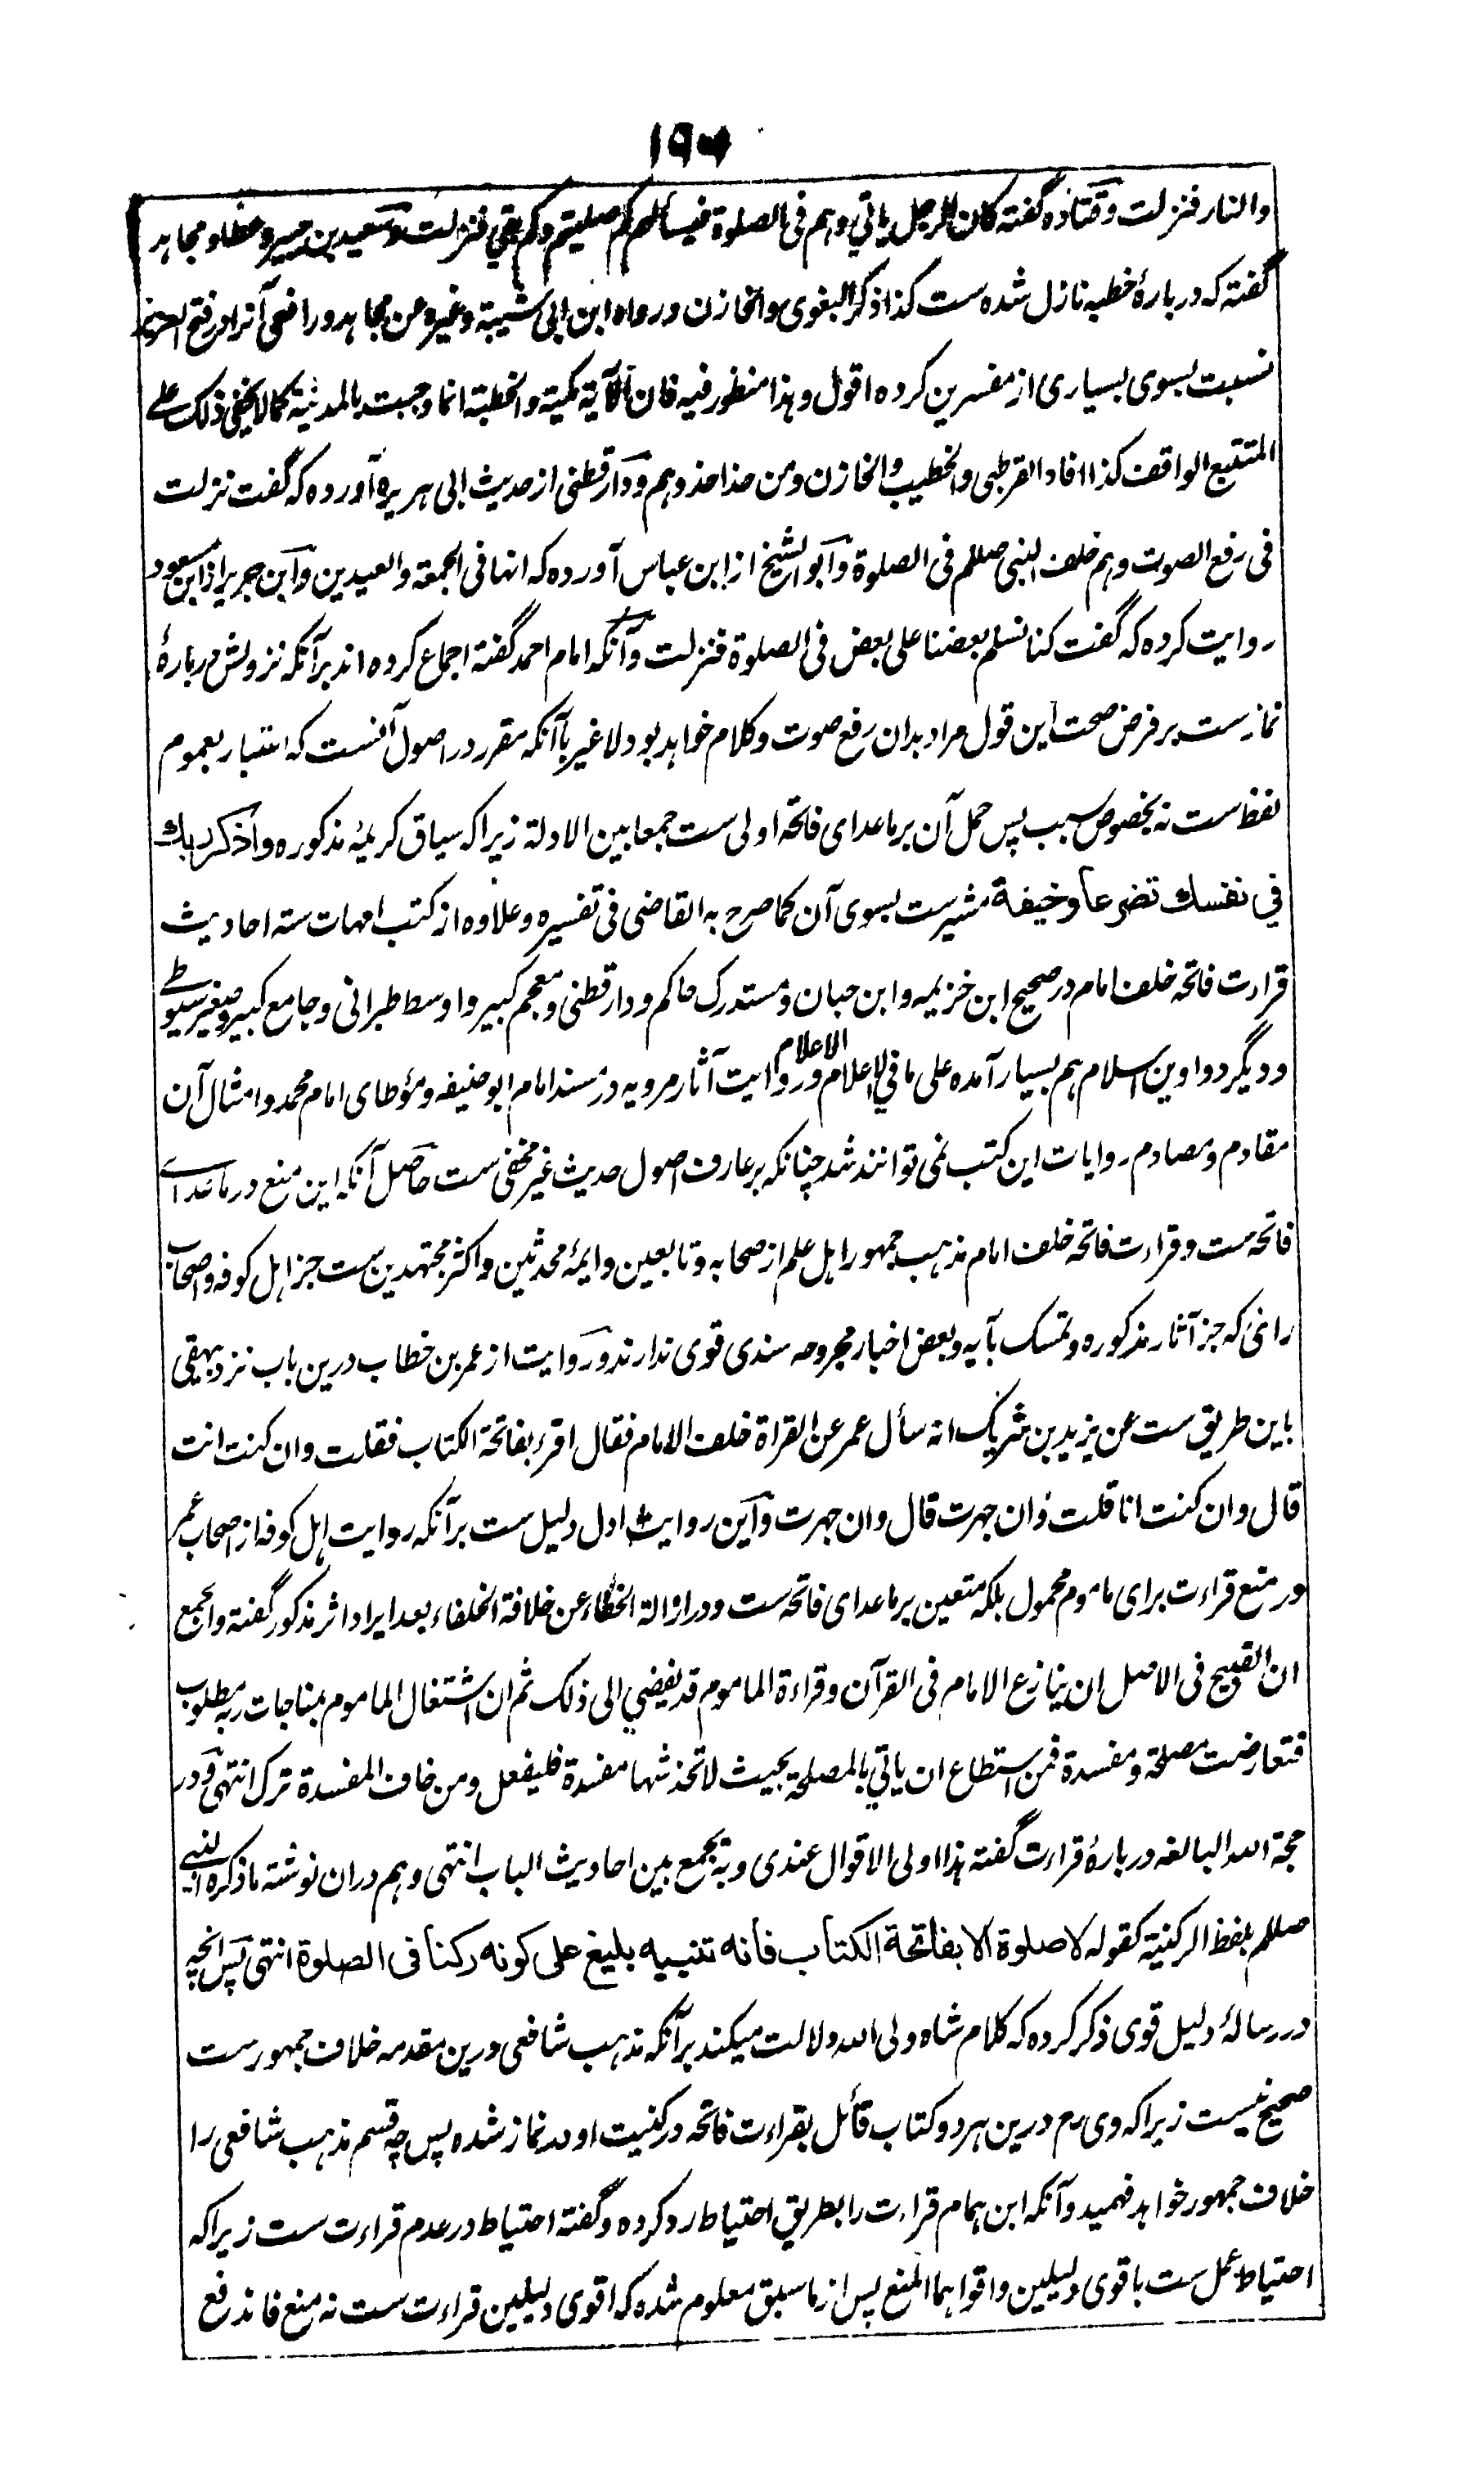 ۱۹۶
والنار فنزلت وقتاده گفته کان الرجل یاتی وهم فی الصلوة فیسألهم کم صلیتم وکم بقی فنزلت وسعید بن جبیر وعطا ومجاهد
گفته که دربارۀ خطبه نازل شده ست کذا ذکر البغوی والخازن ورواه ابن ابی شیبة وغیره عن مجاهد ورافعی آنرا در فتح العزیز
نسبت بسوی بسیاری از مفسرین کرده اقول وهذا منظور فیه فان الآیة مکیة والخطبة انما وجبت بالمدینة کما لا یخفی ذلک علی
المتتبع الواقف کذا افاد القرطبی والخطیب والخازن ومن حذا حذوهم ودارقطنی از حدیث ابی هریره آورده که گفت نزلت
فی رفع الصوت وهم خلف النبی صللم فی الصلوة وابو الشیخ از ابن عباس آورده که انها فی الجمعة والعیدین وابن جریر از ابن مسعود
روایت کرده که گفت کنا نسلم بعضنا علی بعض فی الصلوة فنزلت وآنکه امام احمد گفته اجماع کرده اند برآنکه نزولش دربارۀ
نمازست بر فرض صحت این قول مراد بدان رفع صوت وکلام خواهد بود لا غیر باآنکه مقرر در اصول آنست که اعتبار بعموم
لفظ ست نه بخصوص سبب پس حمل آن بر ماعدای فاتحه اولی ست جمعا بین الادلة زیراکه سیاق کریمۀ مذکوره واذکر ربك
في نفسك تضرعا وخیفة مشیرست بسوی آن کما صرح به القاضی فی تفسیره وعلاوه از کتب امهات سته احادیث
قراءت فاتحه خلف امام در صحیح ابن خزیمه وابن حبان ومستدرک حاکم ودارقطنی ومعجم کبیر واوسط طبرانی وجامع کبیر وصغیر سیوطی
ودیگر دواوین اسلام هم بسیار آمده علی ما فی الاعلام الاعلام وروایت آثار مرویه در مسند امام ابو حنیفه ومؤطای امام محمد وامثال آن
مقادم ومصادم روایات این کتب نمی توانند شد چنانکه بر عارف اصول حدیث غیر مخفی ست حاصل آنکه این منع در ماعدای
فاتحه ست وقراءت فاتحه خلف امام مذهب جمهور اهل علم از صحابه وتابعین وایمۀ محدثین واکثر مجتهدین ست جز اهل کوفه واصحاب
رائ که جز آثار مذکوره وتمسک بآیه وبعض اخبار مجروحه سندی قوی ندارند وروایت از عمر بن خطاب درین باب نزد بیهقی
باین طریق ست عن یزید بن شریک انه سأل عمر عن القراة خلف الامام فقال اقرء بفاتحة الکتاب فقلت وان کنت انت
قال وان کنت انا قلت وان جهرت قال وان جهرت واین روایت ادل دلیل ست برآنکه روایت اهل کوفه از اصحاب عمر
در منع قراءت برای ماموم محمول بلکه متعین بر ماعدای فاتحه ست ودر ازالة الخفاء عن خلافة الخلفاء بعد ایراد اثر مذکور گفته والجمع
ان القبیح فی الاصل ان ینازع الامام فی القرآن وقراءة الماموم قد یفضی الی ذلک ثم ان اشتغال الماموم بمناجات ربه مطلوب
فتعارضت مصلحة ومفسدة فمن استطاع ان یاتی بالمصلحة بحیث لا تخدشها مفسدة فلیفعل ومن خاف المفسدة ترک انتهی ودر
حجة الله البالغه دربارۀ قراءت گفته هذا اولی الاقوال عندی وبه یجمع بین احادیث الباب انتهی وهم دران نوشته ما ذکره النبی
صللم بلفظ الرکنیة کقوله لا صلوة الا بفاتحة الکتاب فانه تنبیه بلیغ علی کونه رکنا فی الصلوة انتهی پس آنچه
در رسالۀ دلیل قوی ذکر کرده که کلام شاه ولی الله دلالت میکند برآنکه مذهب شافعی درین مقدمه خلاف جمهورست
صحیح نیست زیراکه وی رح درین هر دو کتاب قائل بقراءت فاتحه ورکنیت او در نماز شده پس چه قسم مذهب شافعی را
خلاف جمهور خواهد فهمید وآنکه ابن همام قراءت را بطریق احتیاط رد کرده وگفته احتیاط در عدم قراءت ست زیراکه
احتیاط عمل ست باقوی دلیلین واقواهما المنع پس از ما سبق معلوم شده که اقوی دلیلین قراءت ست نه منع فاندفع